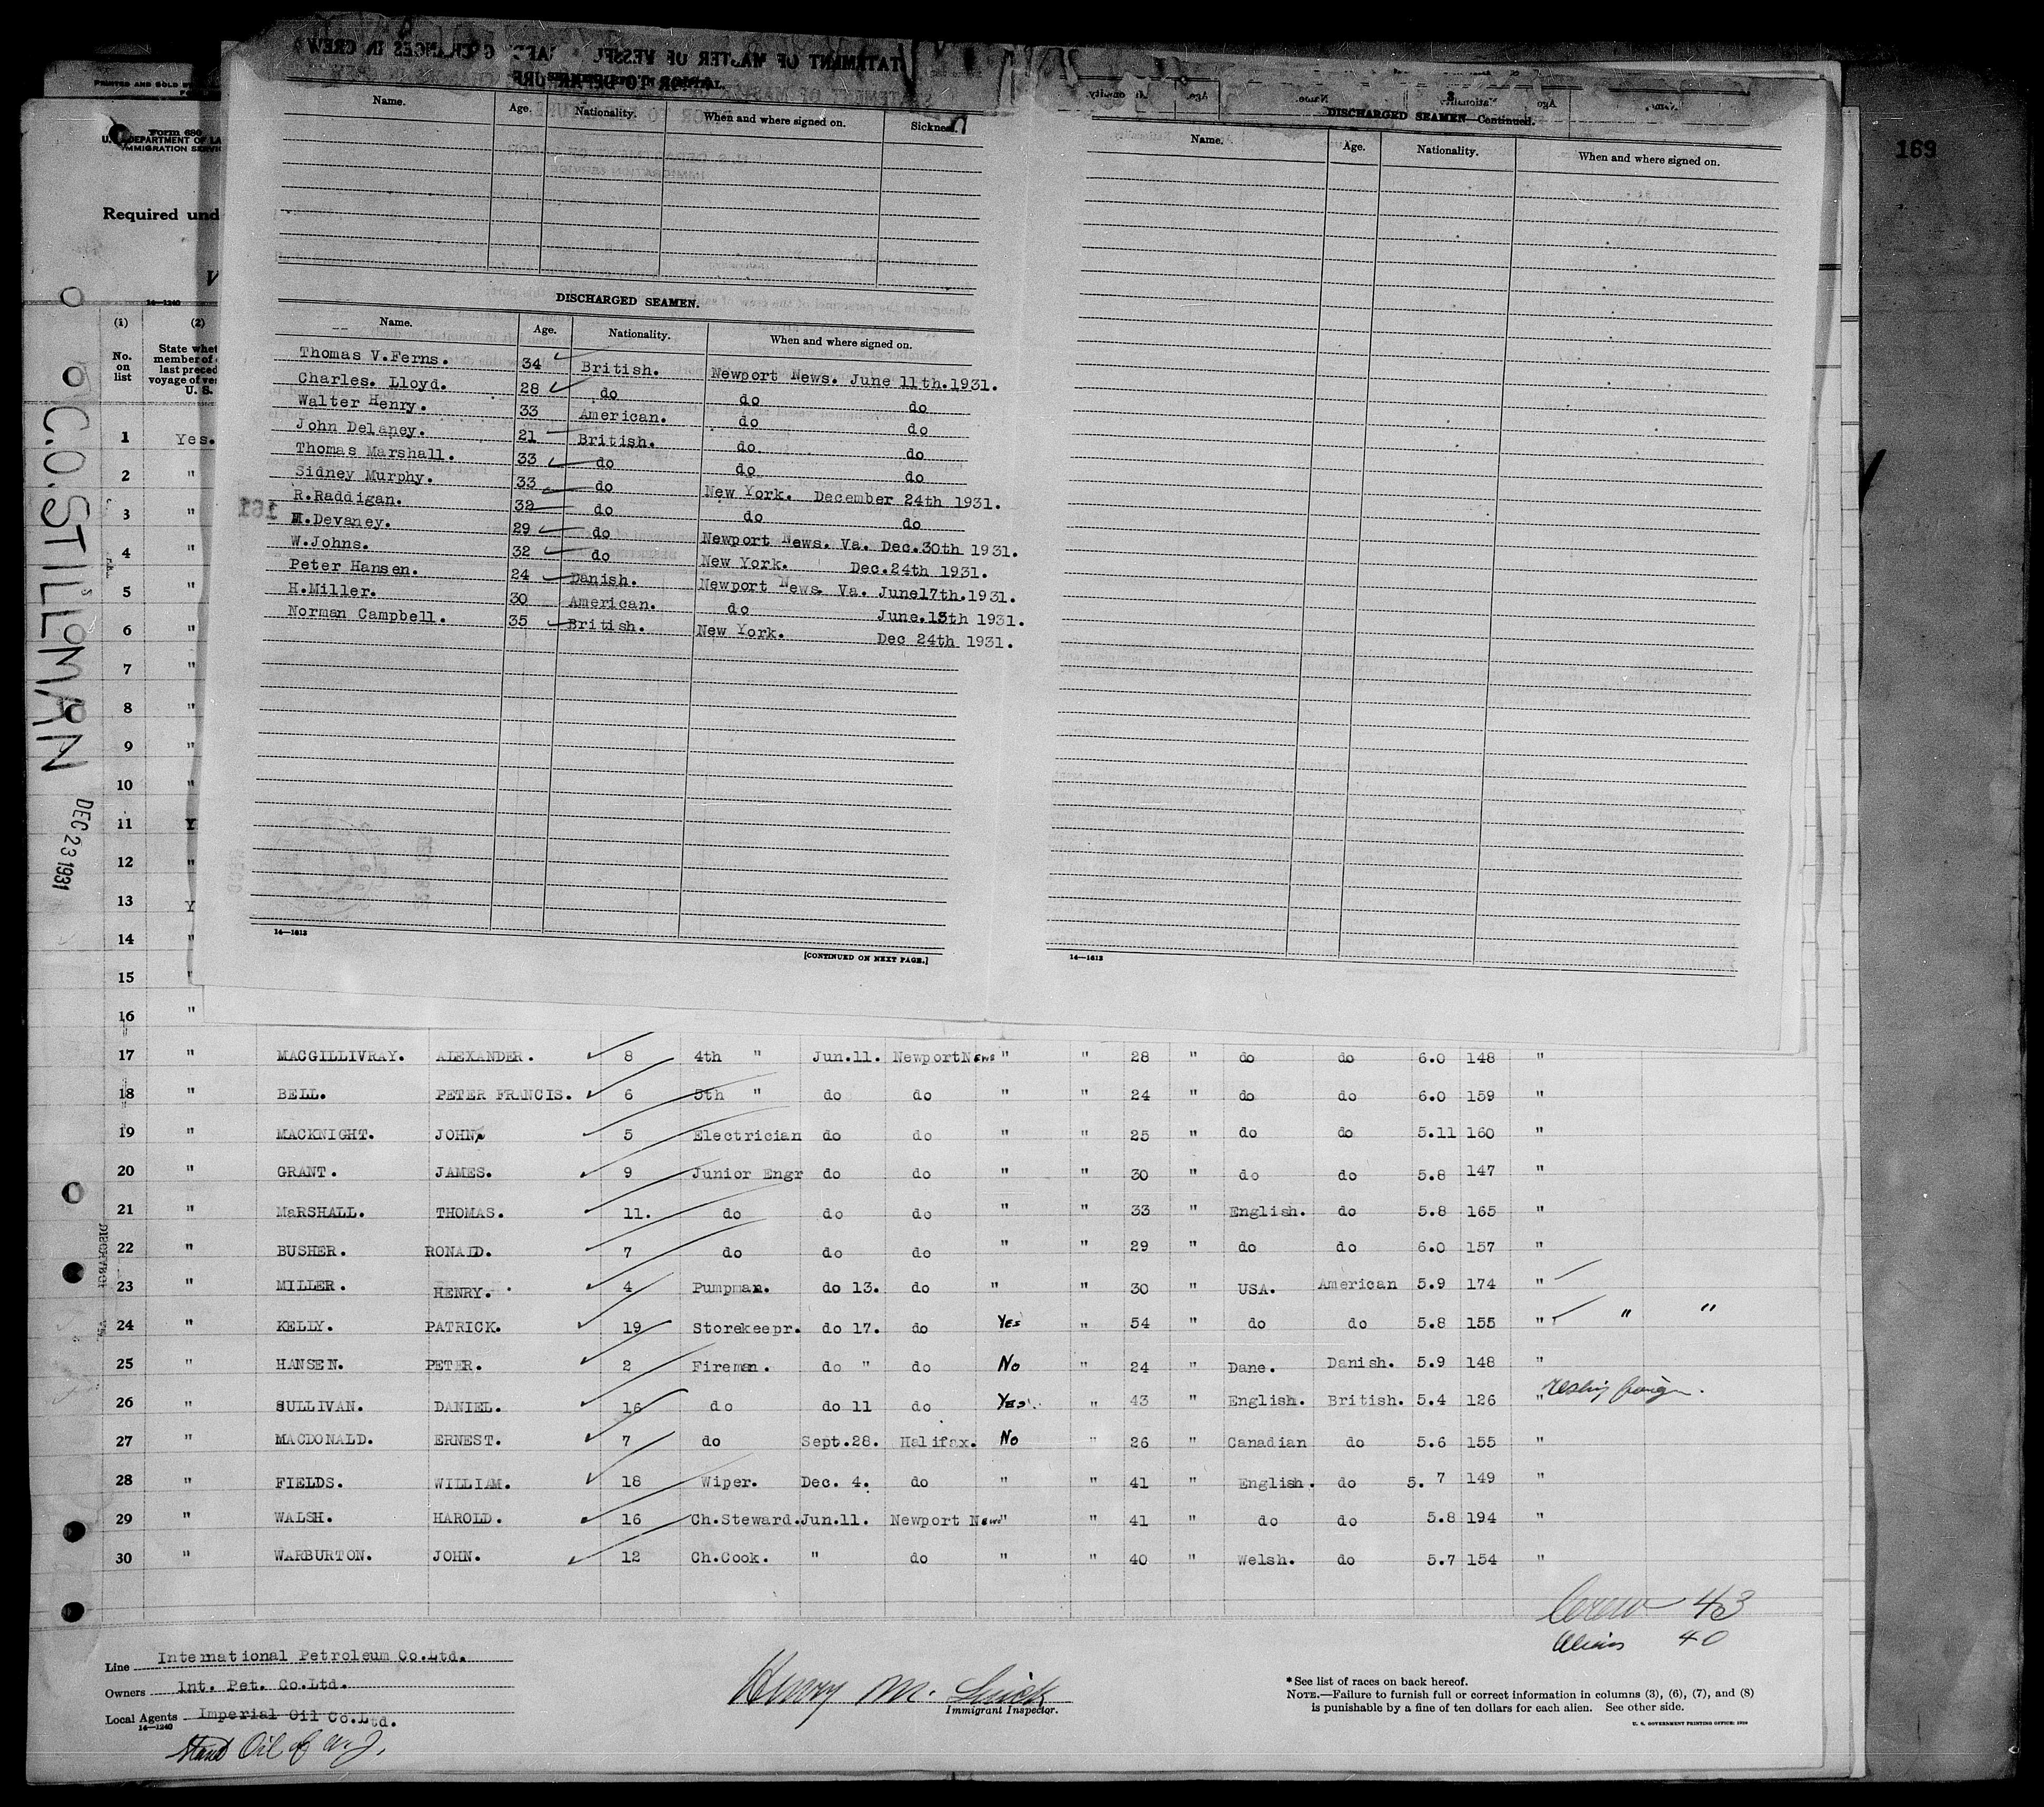 169
PRINTED AND SOLD
Form 680
U. S. DEPARTMENT OF LA
IMMIGRATION SERVIC
Required und
V
14—1240
C.O. STILLMAN
DEC 23 1931
Name. Age. Nationality. When and where signed on. Sickness.
DISCHARGED SEAMEN.
Name. Age. Nationality. When and where signed on.
Thomas V.Ferns. 34 British. Newport News. June 11th.1931.
Charles. Lloyd. 28 do do do
Walter Henry. 33 American. do do
John Delaney. 21 British. do. do
Thomas Marshall. 33 do do do
Sidney Murphy. 33 do New York. December 24th 1931.
R.Raddigan. 32 do do do
M.Devaney. 29 do Newport News. Va. Dec.30th 1931.
W.Johns. 32 do New York. Dec.24th 1931.
Peter Hansen. 24 Danish. Newport News. Va. June17th.1931.
H.Miller. 30 American. do June.13th 1931.
Norman Campbell. 35 British. New York. Dec 24th 1931.
14—1613
[CONTINUED ON NEXT PAGE.]
DISCHARGED SEAMEN—Continued.
Name. Age. Nationality. When and where signed on.
14—1613
(1) (2)
No. on list
State whet
member of
last preced
voyage of ve
U. S.
1 Yes.
2 "
3 "
4 "
5 "
6 "
7 "
8 "
9 "
10 "
11 Y
12 "
13 Y
14 "
15 "
16 "
17 " MACGILLIVRAY. ALEXANDER. 8 4th " Jun.11. Newport News " " 28 " do do 6.0 148 "
18 " BELL. PETER FRANCIS. 6 5th " do do " " 24 " do do 6.0 159 "
19 " MACKNIGHT. JOHN. 5 Electrician do do " " 25 " do do 5.11 160 "
20 " GRANT. JAMES. 9 Junior Engr do do " " 30 " do do 5.8 147 "
21 " MaRSHALL. THOMAS. 11. do do do " " 33 " English. do 5.8 165 "
22 " BUSHER. RONALD. 7 do do do " " 29 " do do 6.0 157 "
23 " MILLER. HENRY. 4 Pumpman. do 13. do " " 30 " USA. American 5.9 174 "
24 " KELLY. PATRICK. 19 Storekeepr. do 17. do Yes " 54 " do do 5.8 155 " " "
25 " HANSEN. PETER. 2 Fireman. do " do No " 24 " Dane. Danish. 5.9 148 "
26 " SULLIVAN. DANIEL. 16 do do 11 do Yes. " 43 " English. British. 5.4 126 "
27 " MACDONALD. ERNEST. 7 do Sept.28. Halifax. No " 26 " Canadian do 5.6 155 "
28 " FIELDS. WILLIAM. 18 Wiper. Dec. 4. do " " 41 " English. do 5. 7 149 "
29 " WALSH. HAROLD. 16 Ch.Steward. Jun.11. Newport News " " 41 " do do 5.8 194 "
30 " WARBURTON. JOHN. 12 Ch.Cook. " do " " 40 " Welsh. do 5.7 154 "
Crew 43
Aliens 40
Line International Petroleum Co.Ltd.
Owners Int. Pet. Co.Ltd.
Local Agents Imperial Oil Co.Ltd.
14—1240
Stand Oil of N.J.
Immigrant Inspector.
* See list of races on back hereof.
NOTE.—Failure to furnish full or correct information in columns (3), (6), (7), and (8)
is punishable by a fine of ten dollars for each alien. See other side.
U. S. GOVERNMENT PRINTING OFFICE: 1930